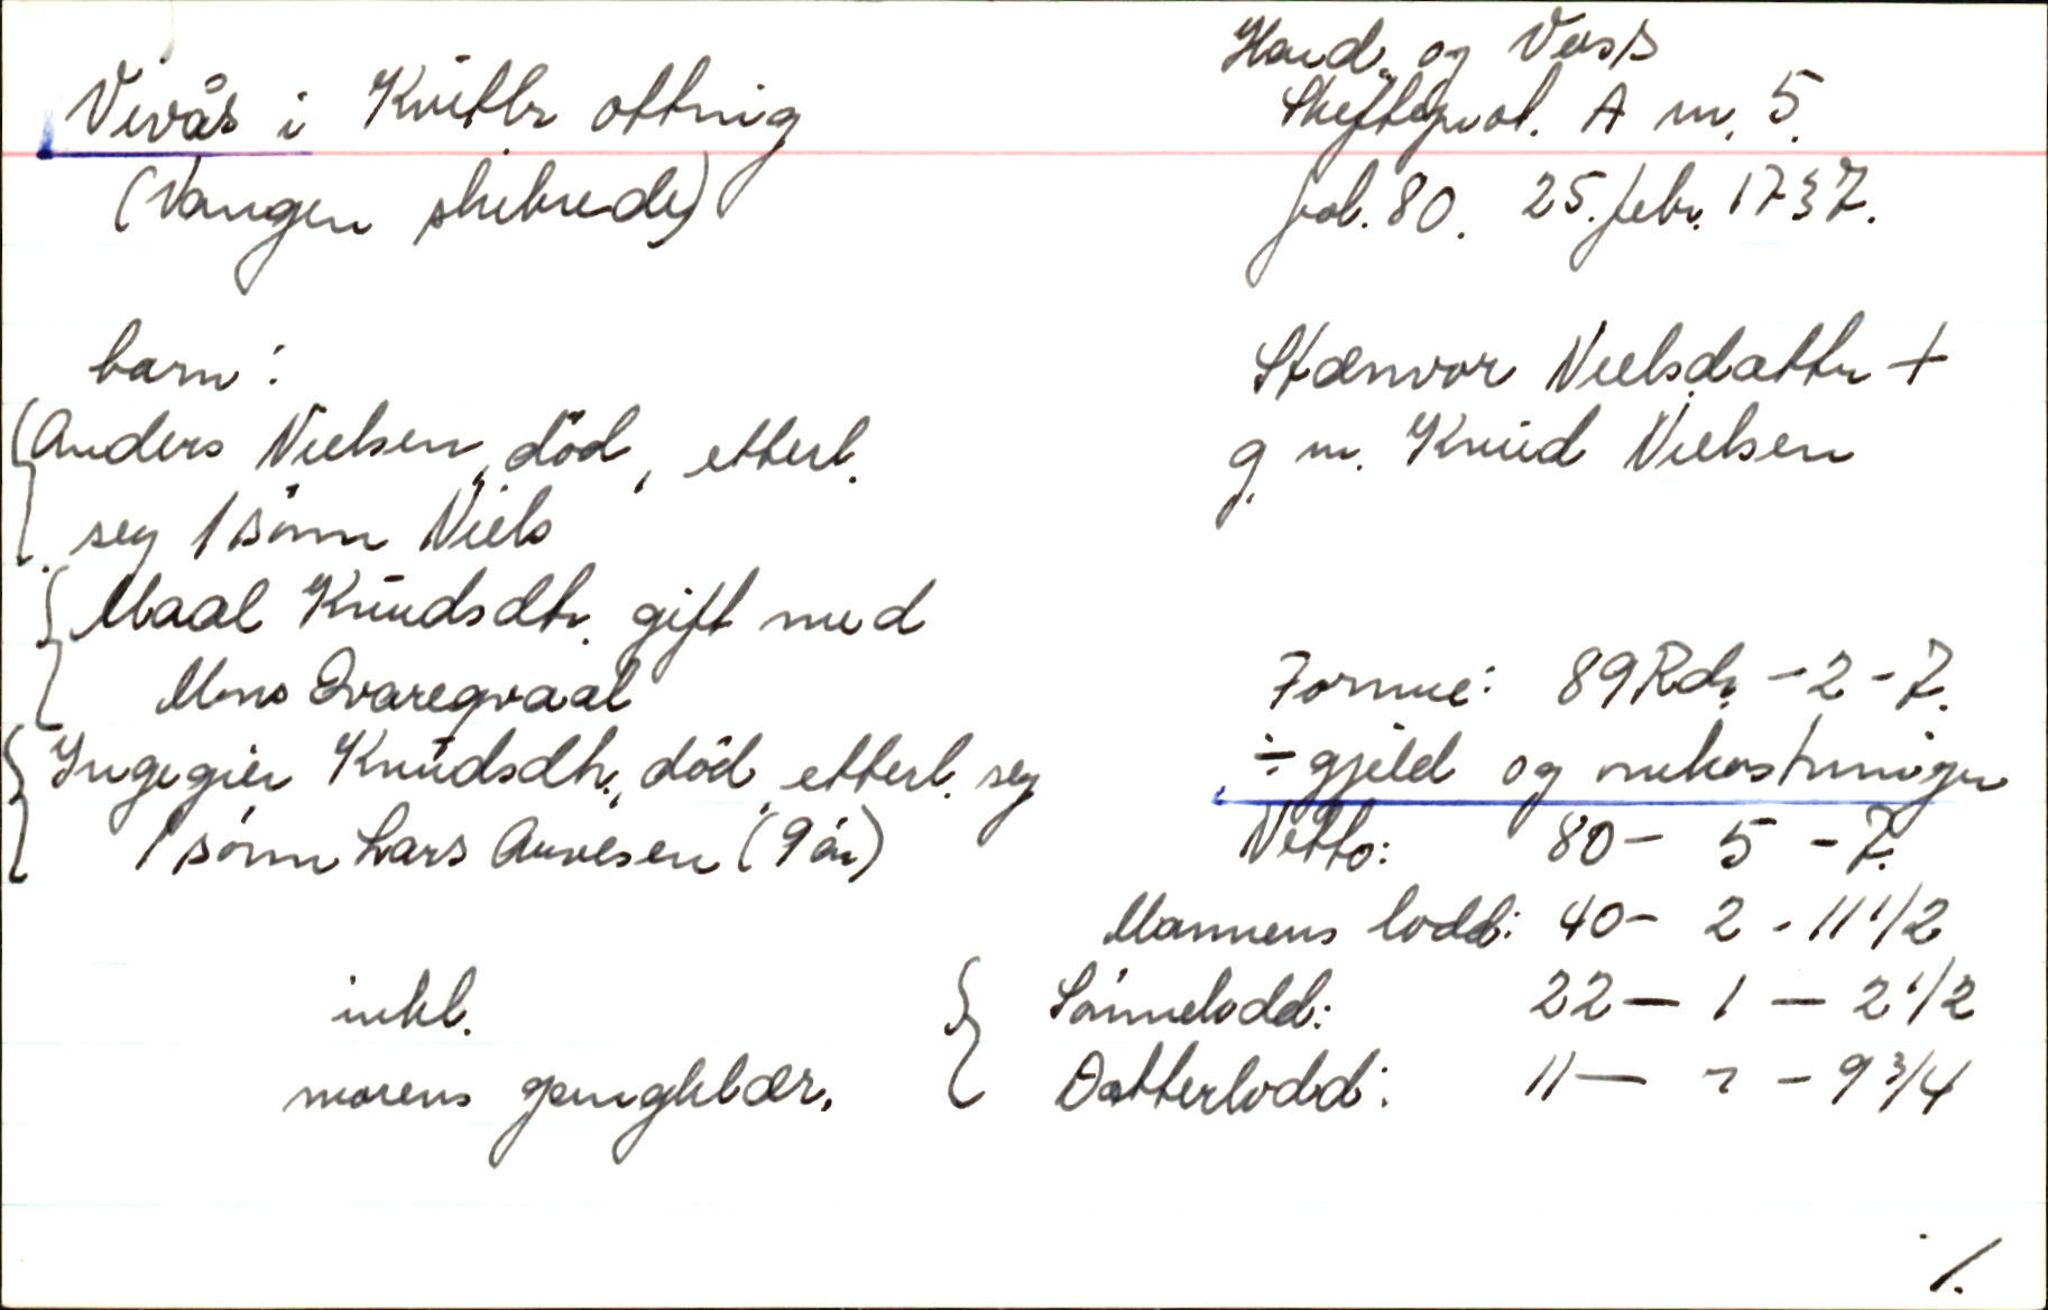 Vivås i Kvitlr ottnig
(Vangen skibrede)
Hard. og Voss
Skifteprot. A nr. 5.
fol. 80. 25. febr. 1737.
barn:
Anders Nielsen, död, etterl.
seg 1 sönn Niels
Maal Knudsdtr. gift med
Mons Qvaregvaal
Ingegier Knudsdtr., död, etterl. seg
1 sönn Lars Anvesen (9 år)
Stænvor Nielsdatter +
g. m. Knud Nielsen
Formue: 89 Rdr. - 2 - 7.
÷ gjeld og omkostninger
Netto: 80 - 5 - 7.
Mannens lodd: 40 - 2 - 11 1/2
inkl.
morens gangklær.
Sönnelodd: 22 - 1 - 2 1/2
Datterlodd: 11 - - 9 3/4
./.